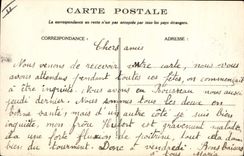 CARTE POSTALE
La correspondance au recto n'est pas acceptée par tous pays étrangers.
CORRESPONDANCE:
ADRESSE:
Chers amis
Nous venons de recevoir votre carte, nous vous
avons attendus pendant toutes ces fêtes, on commençait
à être inquiets. Nous vous en
jeudi dernier. Nous sommes tous les deux en
bonne santé, mais d'un autre côté je suis bien
inquiète, mon frère Albert est gravement malade,
il a une forte fluxion de poitrine, tout cela me donne
bien du tourment. Donc à vendredi. Bons baisers
à tous Maria